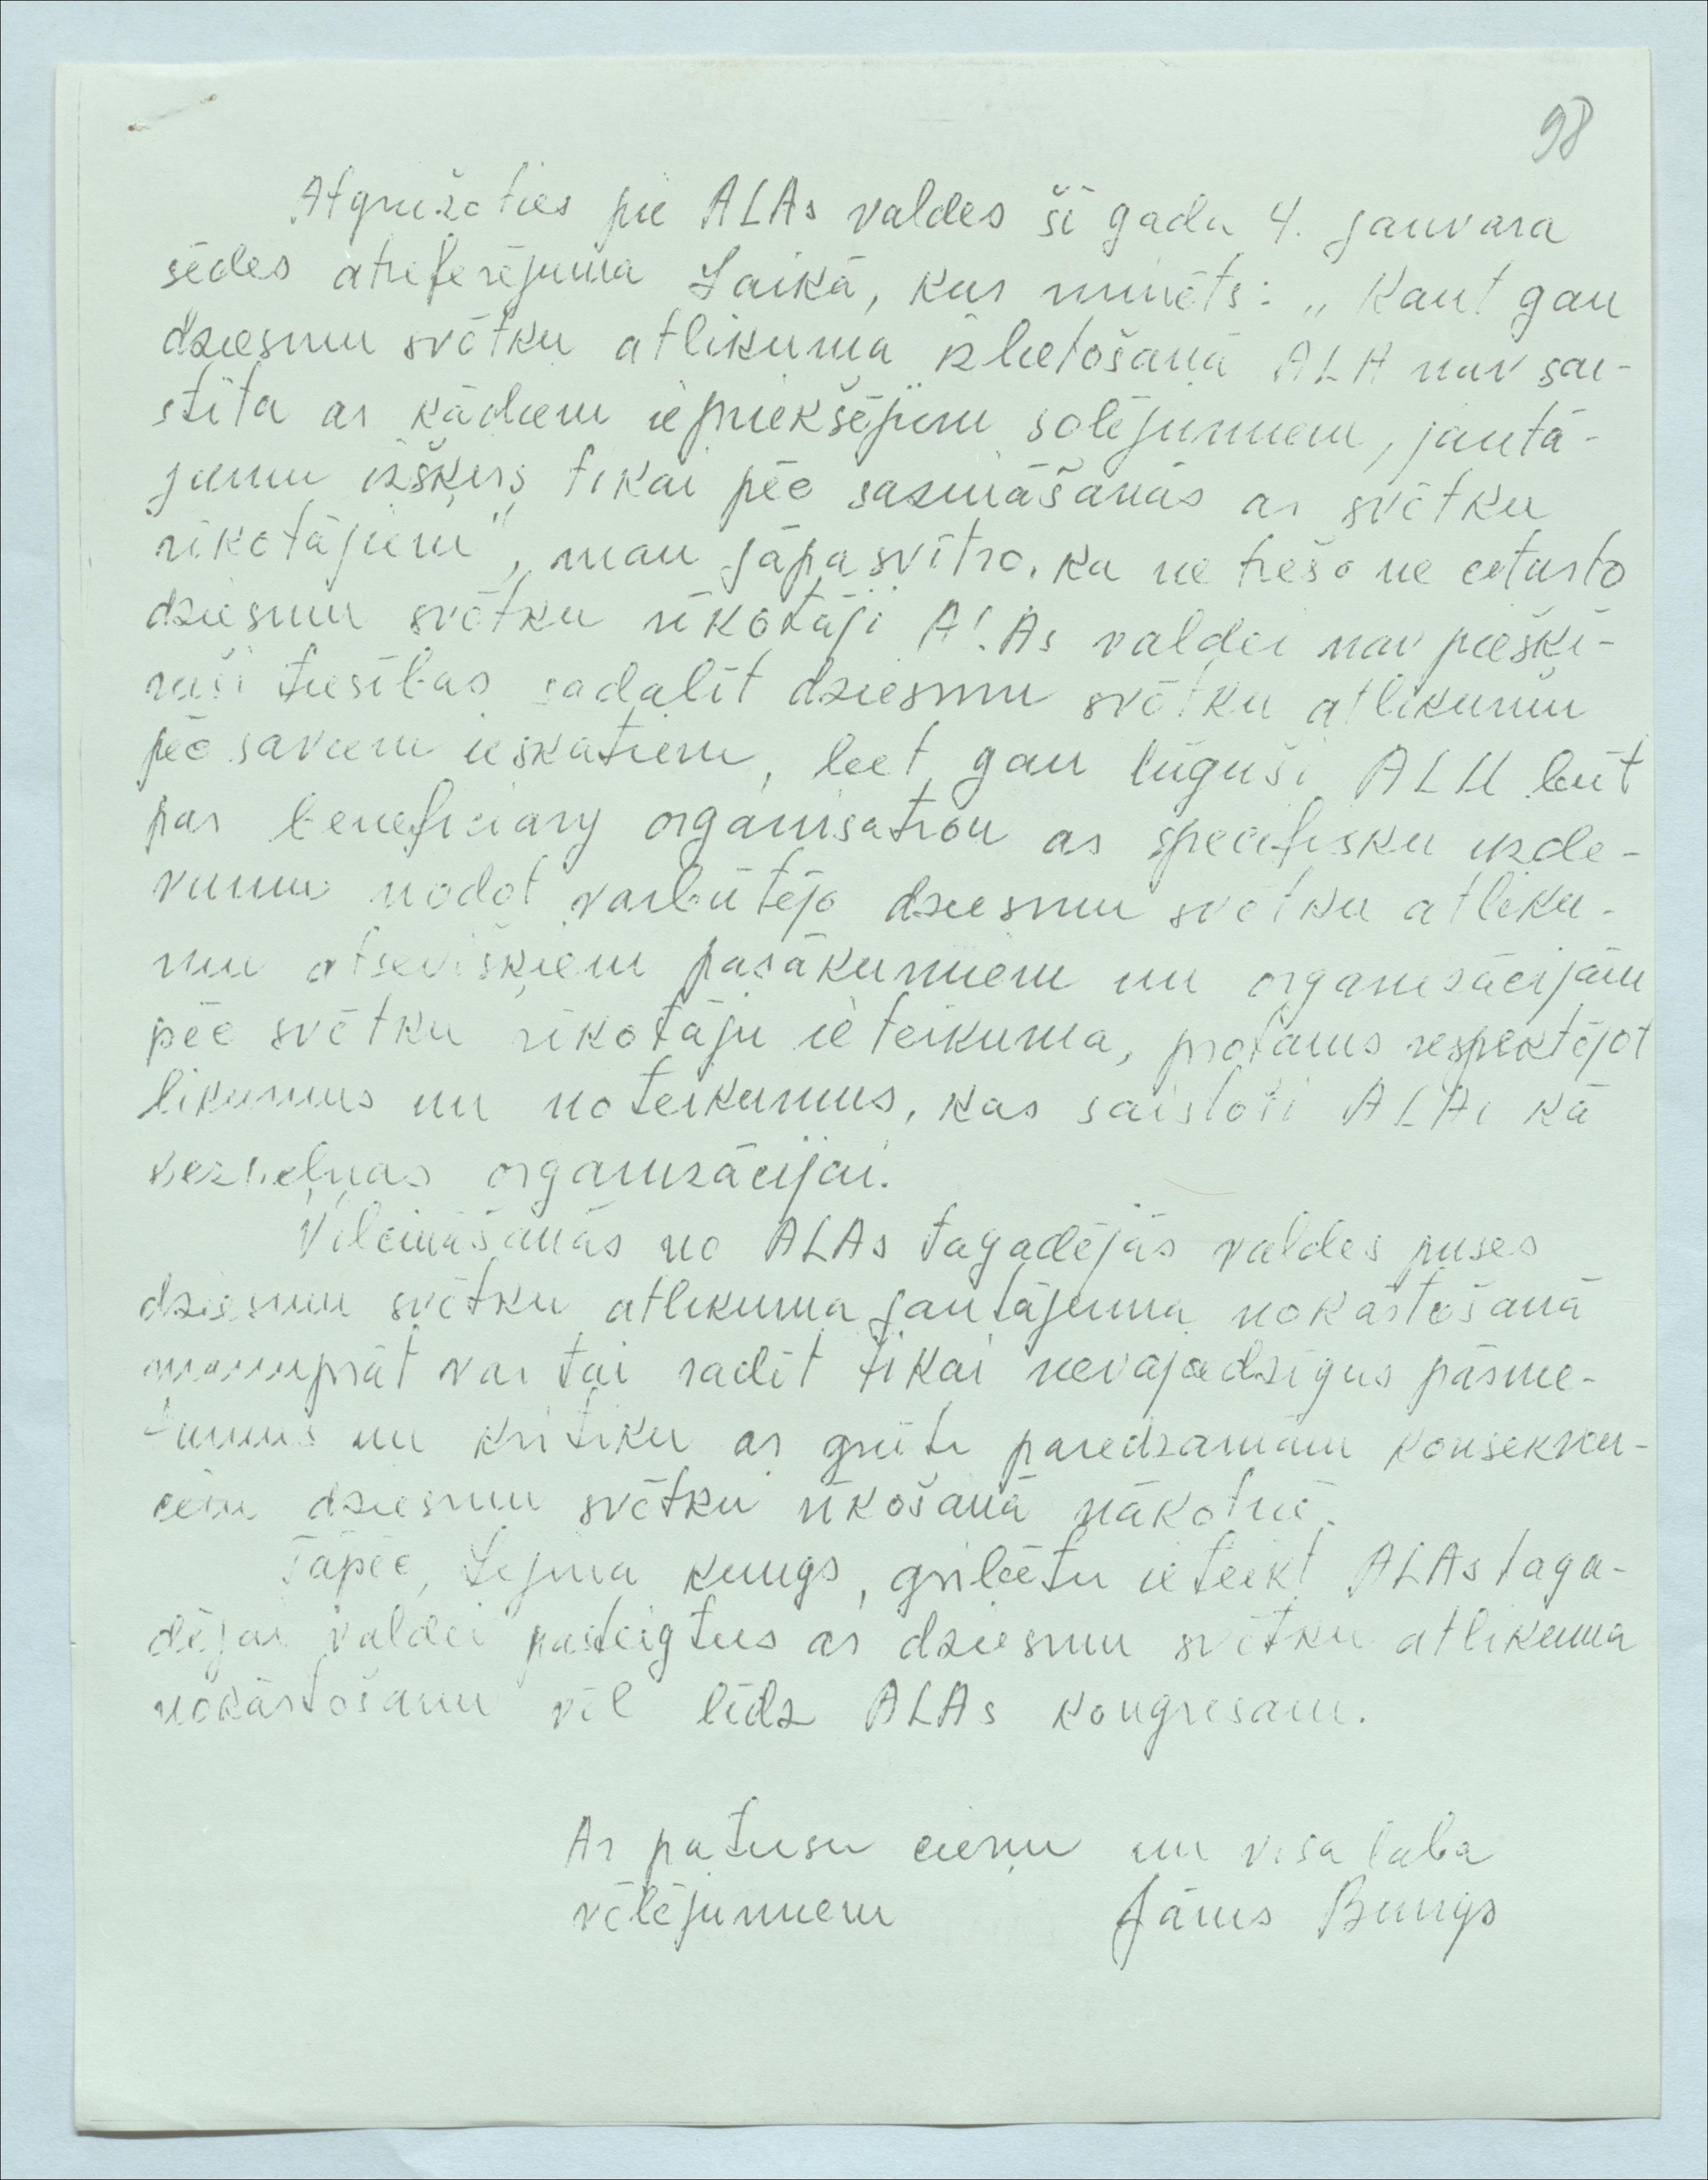 98
Atgriežoties pie ALAs valdes šī gada 4. janvara
sēdes atreferējuma Laikā, kur minēts: „Kaut gan
dziesmu svētku atlikuma izlietošanā ALA nav sai-
stīta ar kādiem iepriekšējiem solījumiem, jautā-
jumu izšķirs tikai pēc sazināšanās ar svētku
rīkotājiem", man jāpasvītro, ka ne trešo ne ceturto
dziesmu svētku rīkotāji ALAs valdei nav piešķī-
ruši tiesības sadalīt dziesmu svētku atlikumu
pēc saviem ieskatiem, bet gan lūguši ALU būt
par beneficiary organisation ar specifisku uzde-
vumu nodot varbūtējo dziesmu svētku atliku-
mu atsevišķiem pasākumiem un organizācijām
pēc svētku rīkotāju ieteikuma, protams respektējot
likumus un noteikumus, kas saistoši ALAi kā
bezpeļņas organizācijai.
Vilcināšanās no ALAs tagadējās valdes puses
dziesmu svētku atlikuma jautājuma nokārtošanā
manuprāt var tai radīt tikai nevajadzīgus pārme-
tumus un kritiku ar grūti paredzamām konsekven-
cēm dziesmu svētku rīkošanā nākotnē.
Tāpēc, Lejiņa kungs, gribētu ieteikt ALAs taga-
dējai valdei pasteigties ar dziesmu svētku atlikuma
nokārtošanu vēl līdz ALAs kongresam.
Ar patiesu cieņu un visa laba
vēlējumiem Jānis Bungs